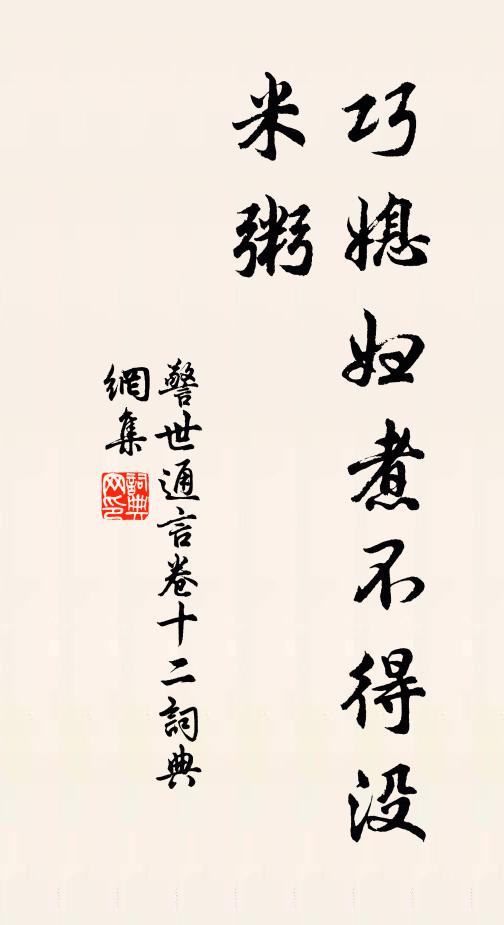 巧媳妇煮不得没
米粥
警世通言卷十二詞典
網集
詞典
网印